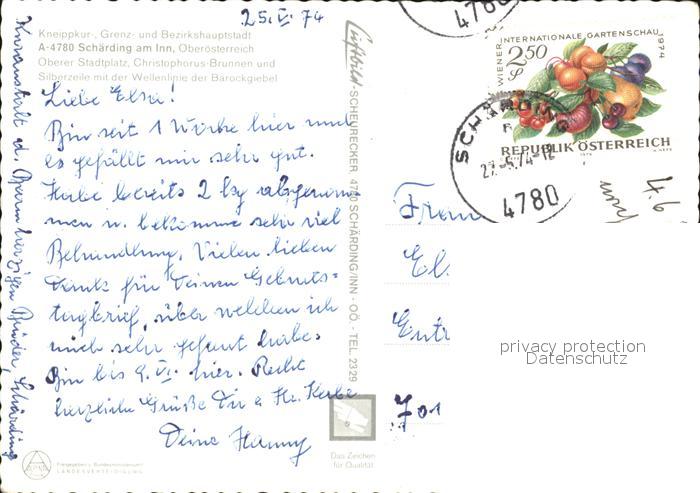 25.V. 74
Kneippkur-, Grenz- und Bezirkshauptstadt
A-4780 Schärding am Inn, Oberösterreich
Oberer Stadtplatz, Christophorus-Brunnen und
Silberzeile mit der Wellenlinie der Barockgiebel
Liebe Elsa!
Bin seit 1 Woche hier und
es gefällt mir sehr gut.
Habe bereits 2 kg abgenom
men u. bekomme sehr viel
Behandlung. Vielen lieben
Dank für Deinen Geburts=
tagbrief, über welchen ich
mich sehr gefreut habe.
Bin bis 9. VI. hier. Recht
herzliche Grüße Dir u Hr.
Deine Hanny
Kuranstalt d. Barmherzigen Brüder, Schärding
Luftbild-SCHEURECKER, 4780 SCHÄRDING/INN - OÖ. - TEL. 2329
Das Zeichen
für Qualität
Freigegeben v. Bundesministerium f.
LANDESVERTEIDIGUNG
4780
WIENER INTERNATIONALE GARTENSCHAU 1974
2.50
S
REPUBLIK ÖSTERREICH
SCHÄRDING
27.-5.74-12
4780
4.6
Frau
El
701
privacy protection
Datenschutz